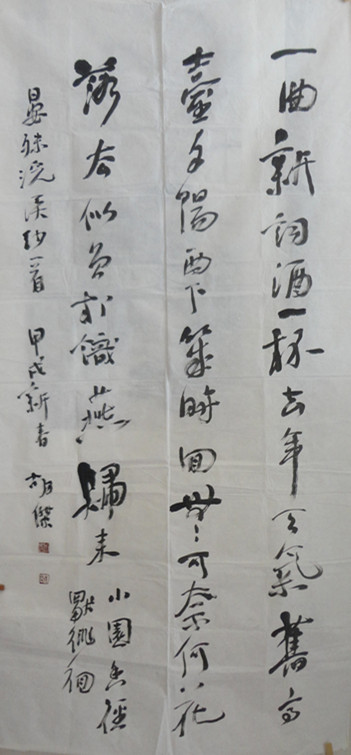 一曲新詞酒一杯去年天氣舊亭
臺夕陽西下幾時回無可奈何花
落去似曾相識燕歸來
小園香徑
獨徘徊
晏殊浣溪紗一首 甲戌新春 胡傑